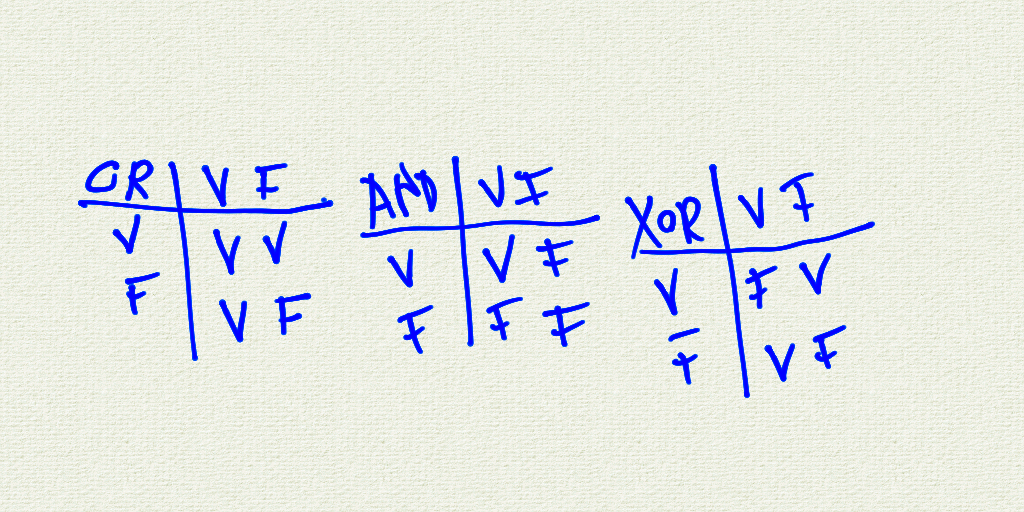 OR V F
V V V
F V F
AND V F
V V F
F F F
XOR V F
V F V
F V F